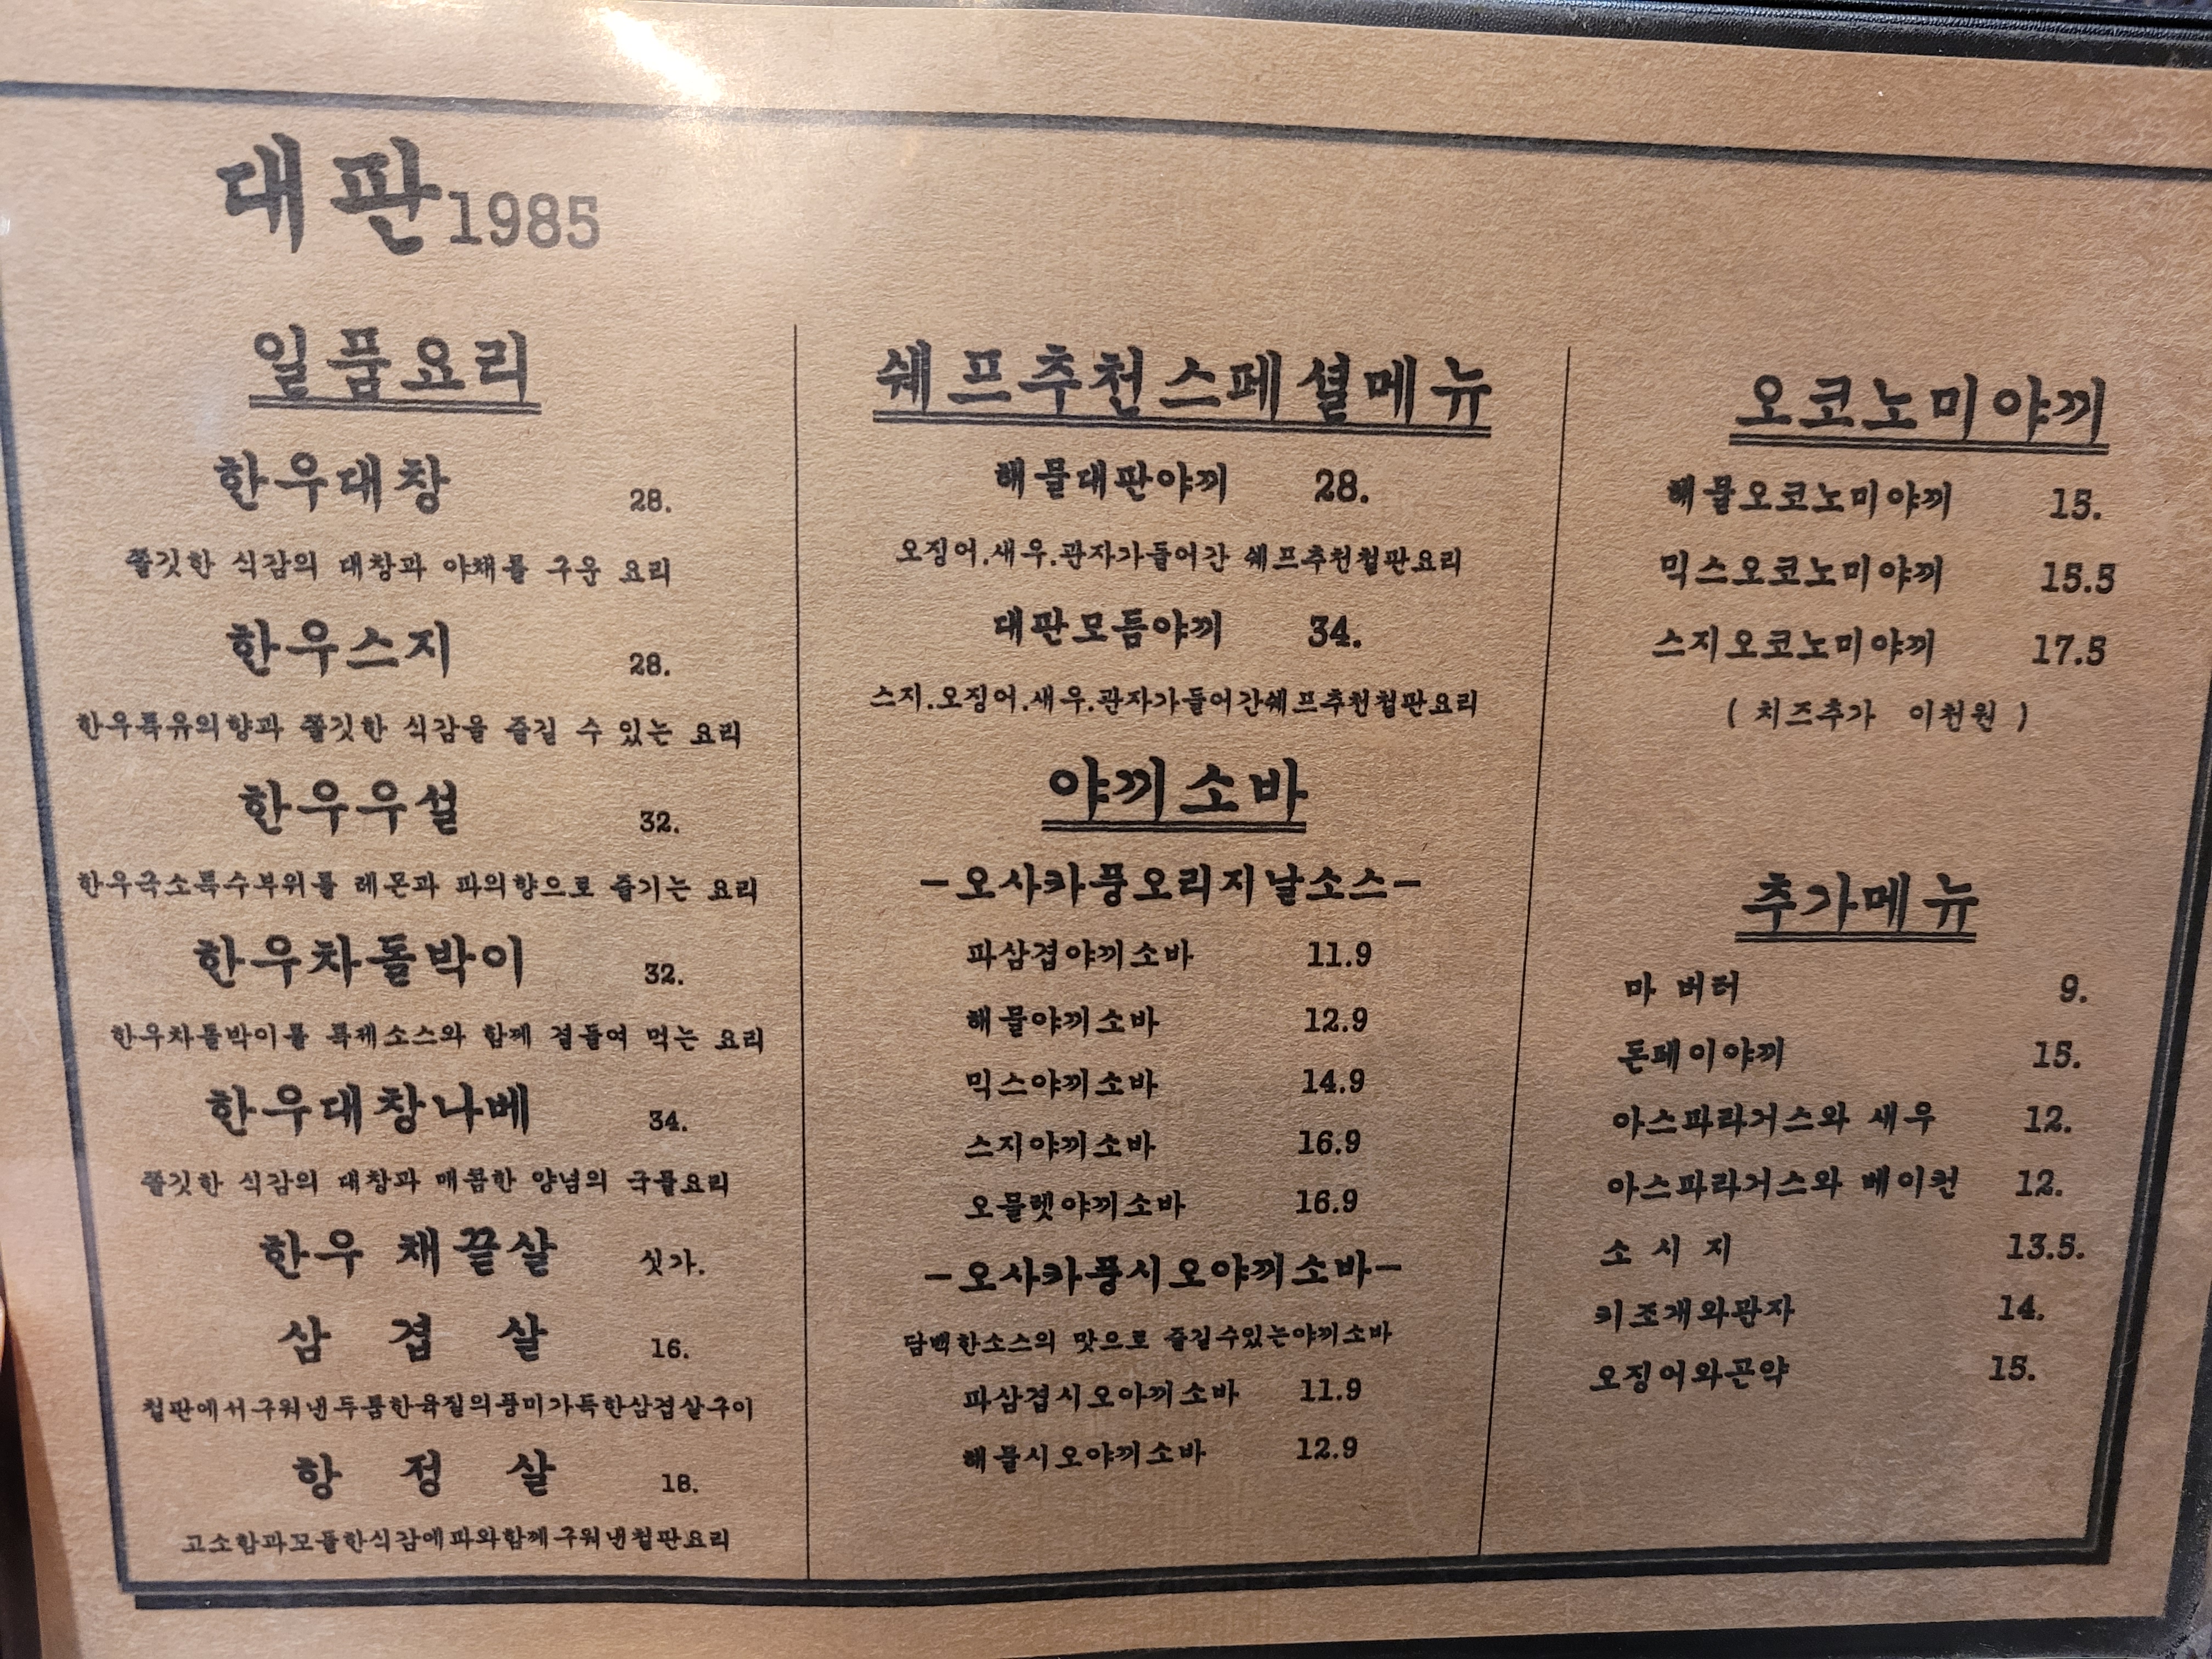 대판1985
일품요리
한우대창 28.
쫄깃한 식감의 대창과 야채를 구운 요리
한우스지 28.
한우특유의향과 쫄깃한 식감을 즐길 수 있는 요리
한우우설 32.
한우극소특수부위를 레몬과 파의향으로 즐기는 요리
한우차돌박이 32.
한우차돌박이를 특제소스와 함께 곁들여 먹는 요리
한우대창나베 34.
쫄깃한 식감의 대창과 매콤한 양념의 국물요리
한우 채끝살 싯가.
삼 겹 살 16.
철판에서구워낸두툼한육질의풍미가득한삼겹살구이
항 정 살 18.
고소함과꼬들한식감에파와함께구워낸철판요리
쉐프추천스페셜메뉴
해물대판야끼 28.
오징어.새우.관자가들어간 쉐프추천철판요리
대판모듬야끼 34.
스지.오징어.새우.관자가들어간쉐프추천철판요리
야끼소바
-오사카풍오리지날소스-
파삼겹야끼소바 11.9
해물야끼소바 12.9
믹스야끼소바 14.9
스지야끼소바 16.9
오믈렛야끼소바 16.9
-오사카풍시오야끼소바-
담백한소스의 맛으로 즐길수있는야끼소바
파삼겹시오야끼소바 11.9
해물시오야끼소바 12.9
오코노미야끼
해물오코노미야끼 15.
믹스오코노미야끼 15.5
스지오코노미야끼 17.5
( 치즈추가 이천원 )
추가메뉴
마 버터 9.
돈페이야끼 15.
아스파라거스와 새우 12.
아스파라거스와 베이컨 12.
소 시 지 13.5.
키조개와관자 14.
오징어와곤약 15.